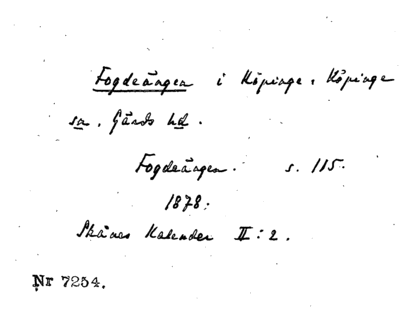 Fogdeängen i Köpinge, Köpinge
sn. Gärds hd.
Fogdeängen. s. 115.
1878:
Skånes Kalender II: 2.
Nr 7254.